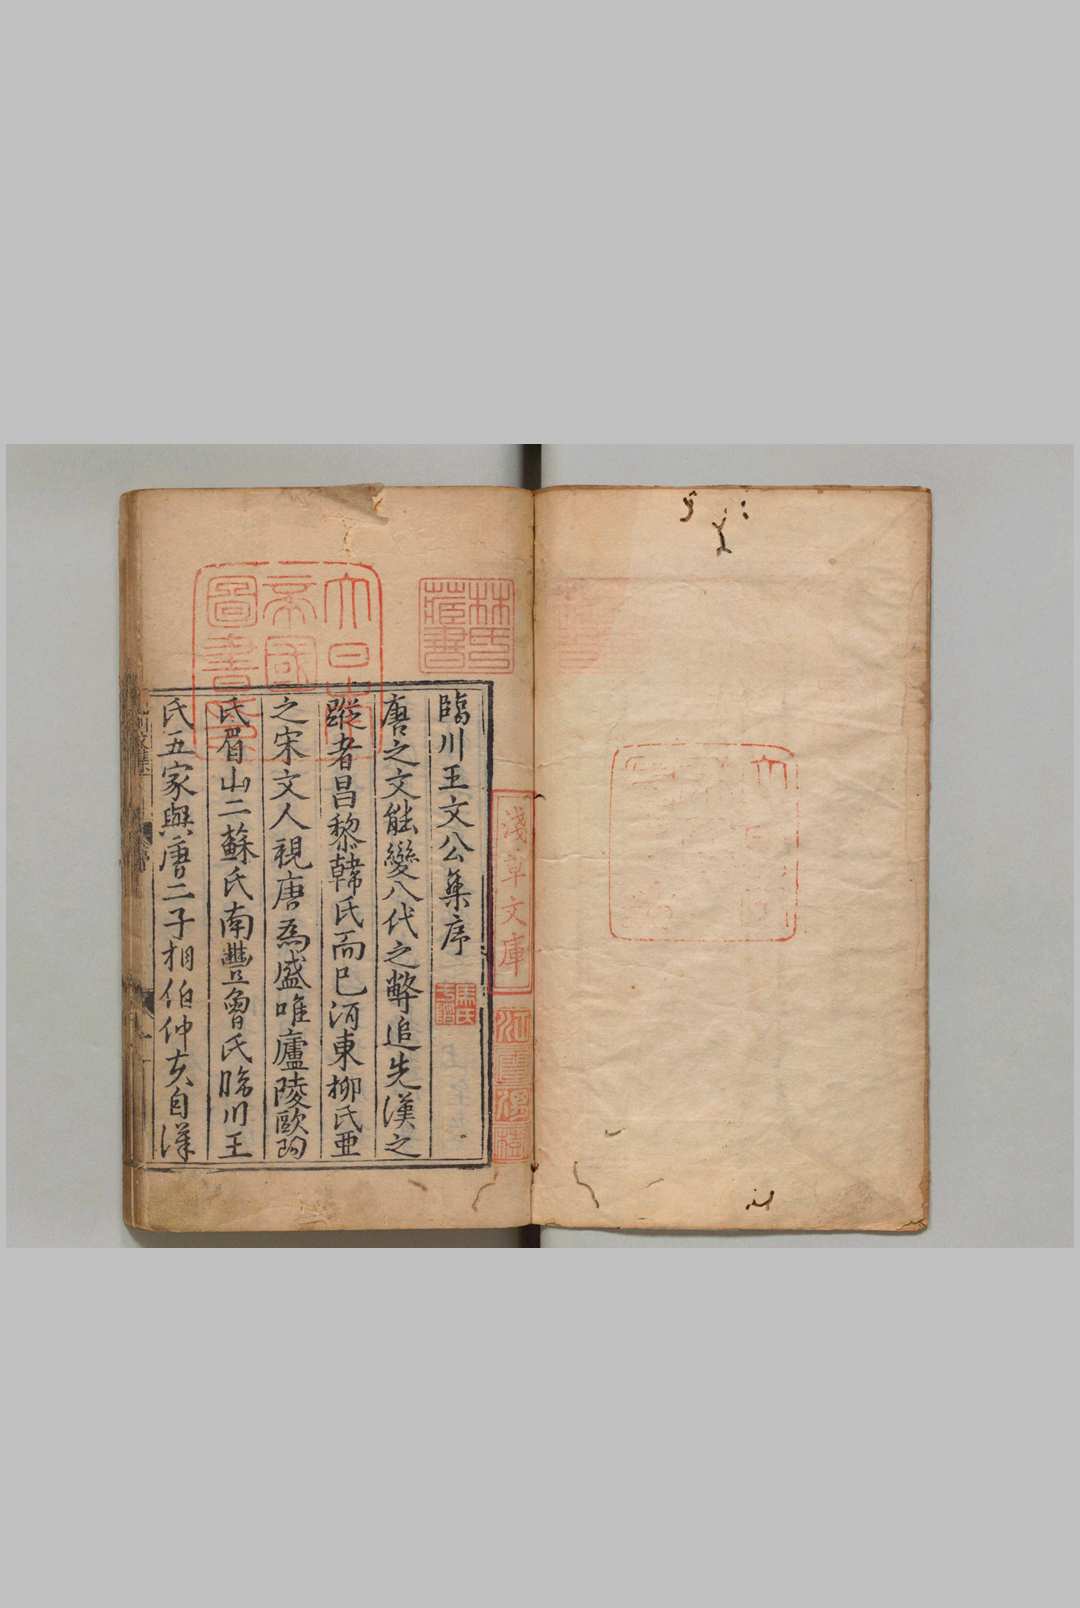 臨川王文公集序
唐之文能變八代之弊追先漢之
蹤者昌黎韓氏而已河東柳氏亜
之宋文人視唐為盛唯廬陵歐陽
氏眉山二蘇氏南豐曾氏臨川王
氏五家與唐二子相伯仲夫自漢
林氏藏書
大日本帝國圖書
淺草文庫
江雲渭樹